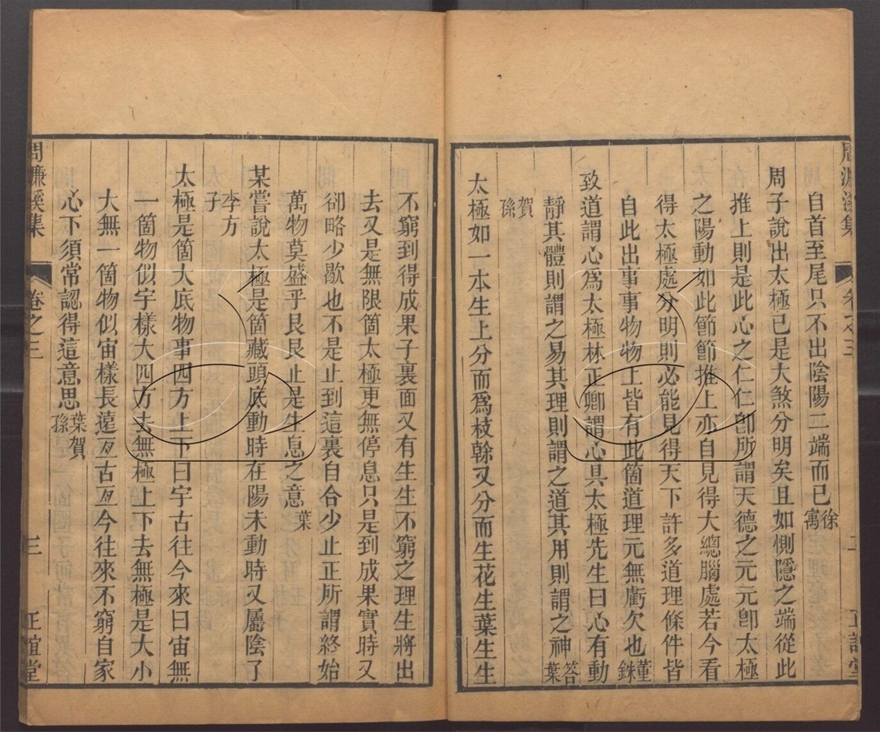 周濂溪集
卷之三
二
正誼堂
自首至尾只不出陰陽二端而已徐寓
周子說出太極已是大煞分明矣且如惻隱之端從此
推上則是此心之仁仁卽所謂天德之元元卽太極
之陽動如此節節推上亦自見得大總腦處若今看
得太極處分明則必能見得天下許多道理條件皆
自此出事事物物上皆有此箇道理元無虧欠也董銖
致道謂心爲太極林正卿謂心具太極先生曰心有動
靜其體則謂之易其理則謂之道其用則謂之神答葉
賀孫
太極如一本生上分而爲枝榦又分而生花生葉生生
不窮到得成果子裏面又有生生不窮之理生將出
去又是無限箇太極更無停息只是到成果實時又
卻略少歇也不是止到這裏自合少止正所謂終始
萬物莫盛乎艮艮止是生息之意葉
某嘗說太極是箇藏頭底動時在陽未動時又屬陰了
李方子
太極是箇大底物事四方上下曰宇古往今來曰宙無
一箇物似宇樣大四方去無極上下去無極是大小
大無一箇物似宙樣長遠亙古亙今往來不窮自家
心下須常認得這意思葉賀孫
周濂溪集
卷之三
三
正誼堂